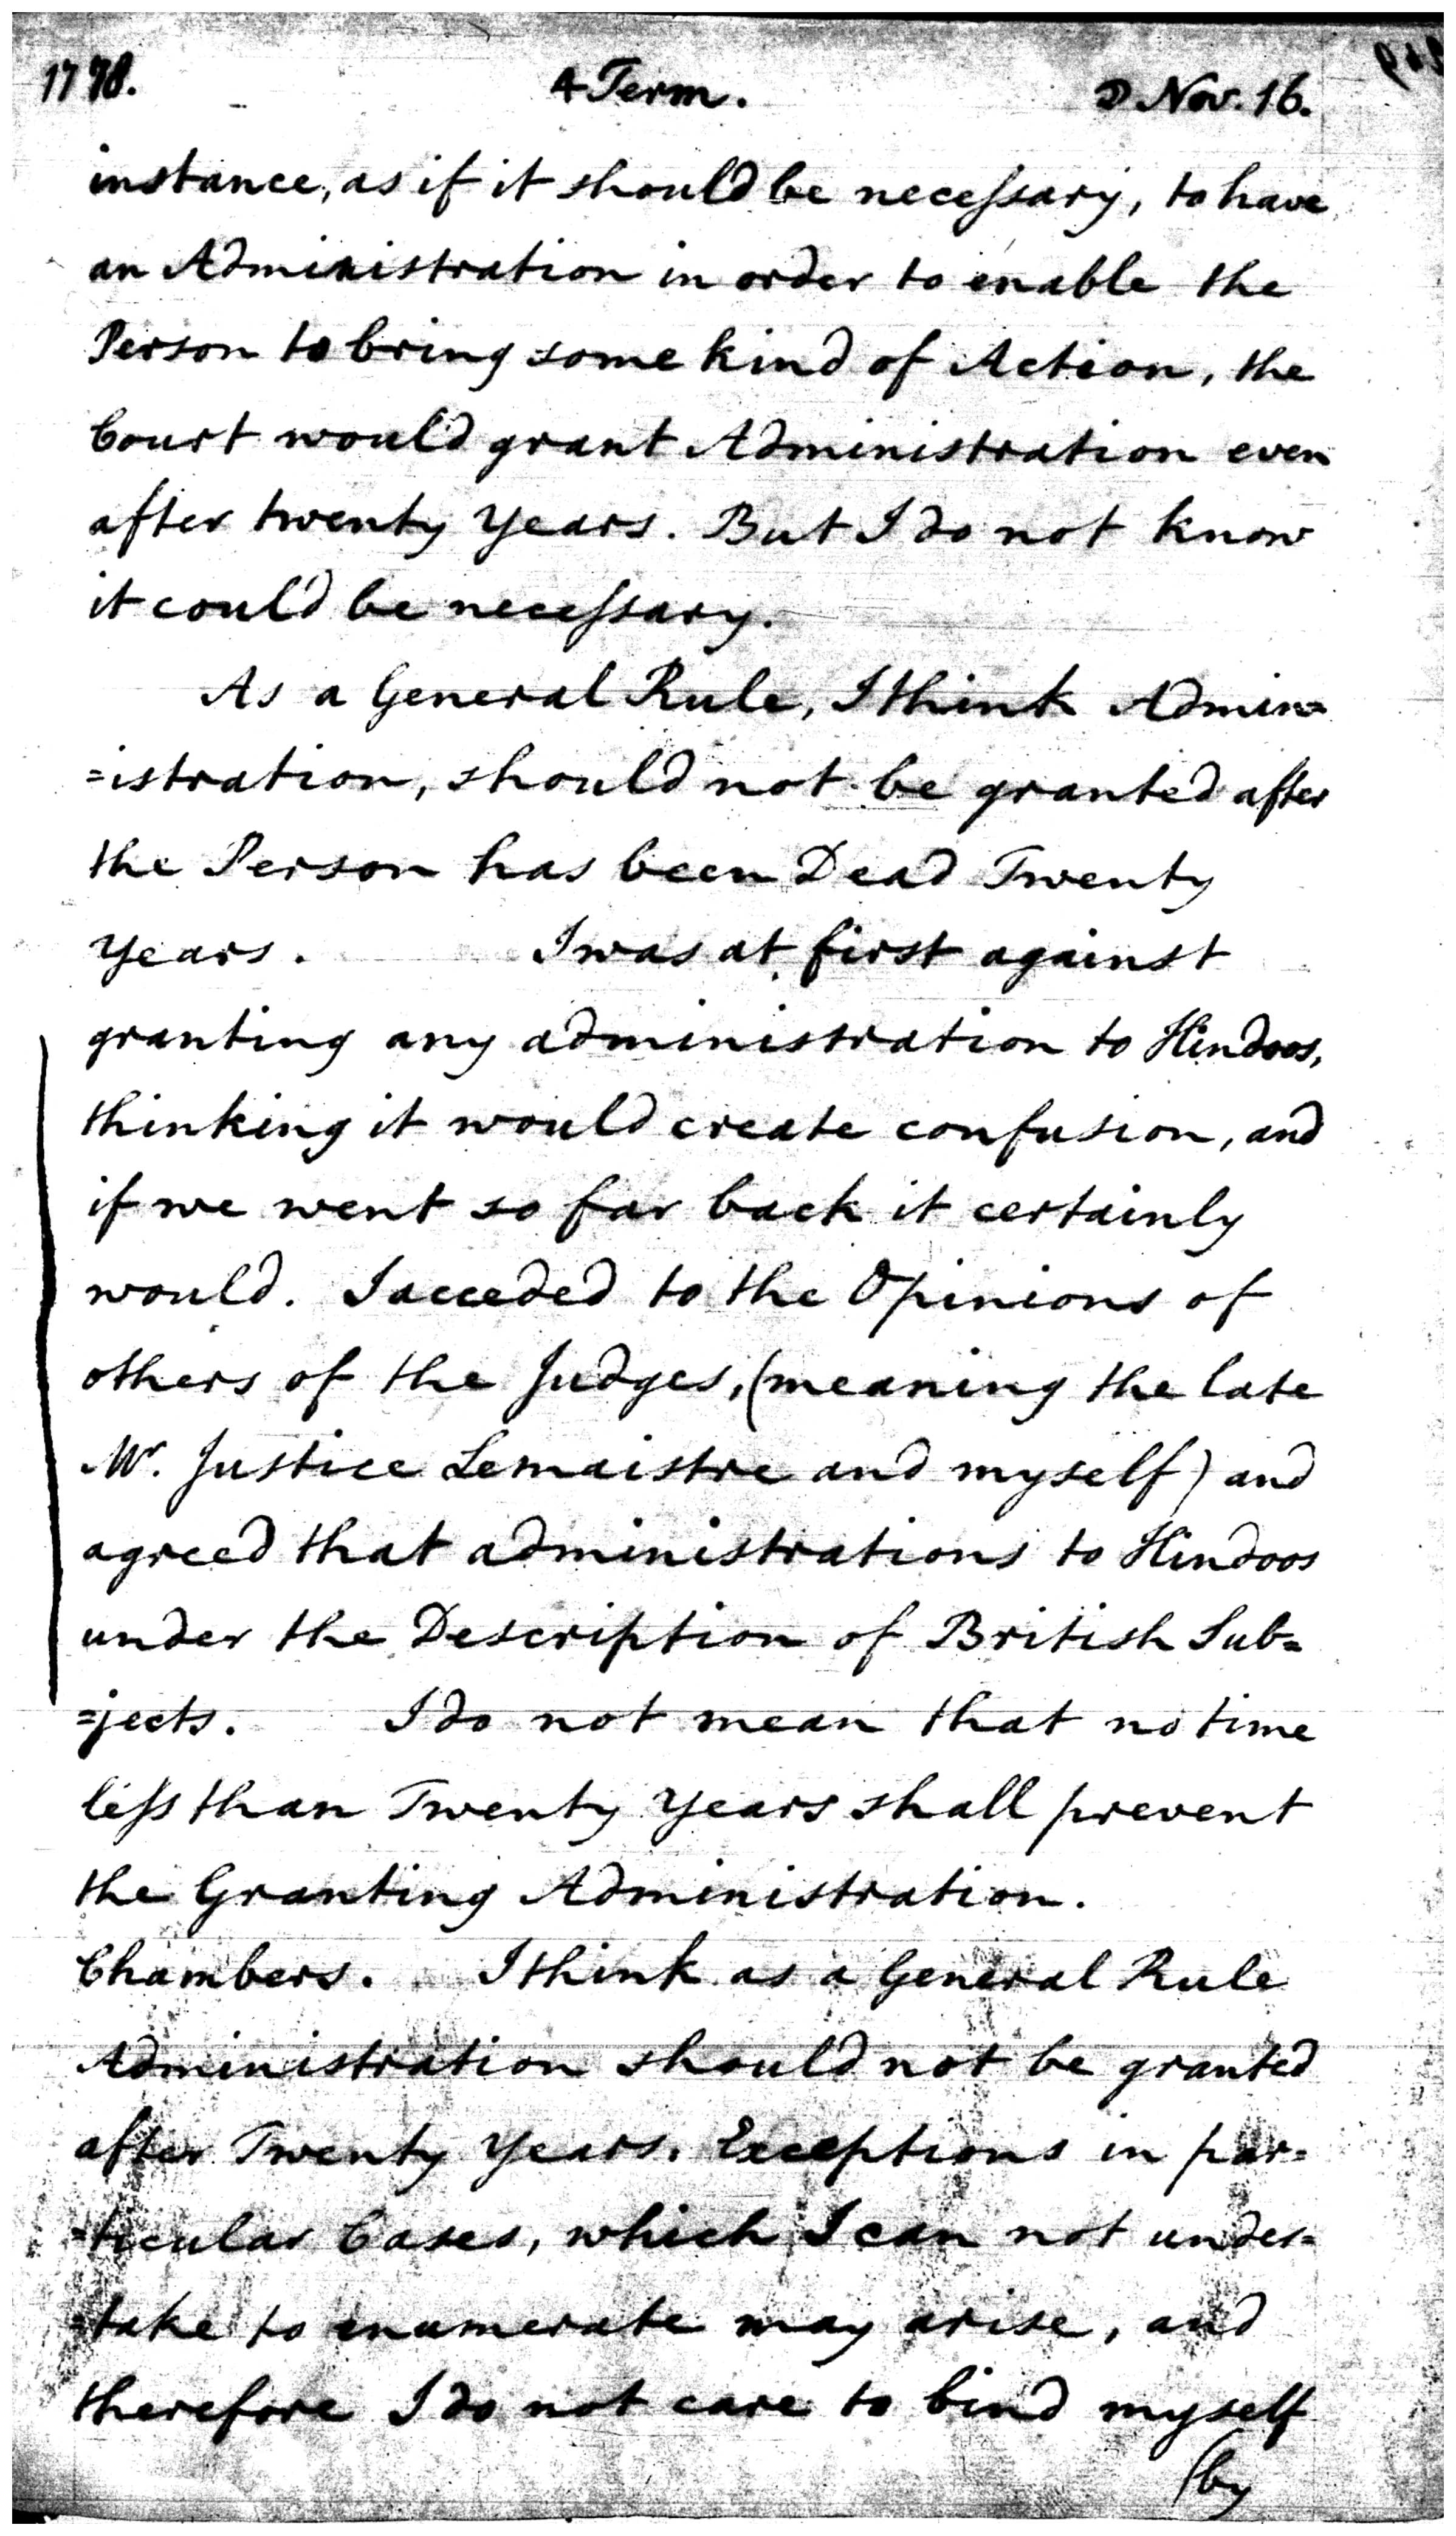 1778. 4 Term. ☽ Nov. 16.
instance, as if it should be neceſsary, to have
an Administration in order to enable the
Person to bring some kind of Action, the
Court would grant Administration even
after twenty years. But I do not know
it could be neceſsary.
As a General Rule, I think Admin=
=istration, should not be granted after
the Person has been Dead Twenty
years. I was at first against
granting any administration to Hindoos,
thinking it would create confusion, and
if we went so far back it certainly
would. I acceded to the Opinions of
others of the Judges, (meaning the late
Mr. Justice Lemaistre and myself) and
agreed that administrations to Hindoos
under the Description of British Sub=
=jects. I do not mean that no time
leſs than Twenty years shall prevent
the Granting Administration.
Chambers. I think as a General Rule
Administration should not be granted
after Twenty years. Exceptions in par=
=ticular Cases, which I can not under=
=take to enumerate may arise, and
therefore I do not care to bind myself
(by